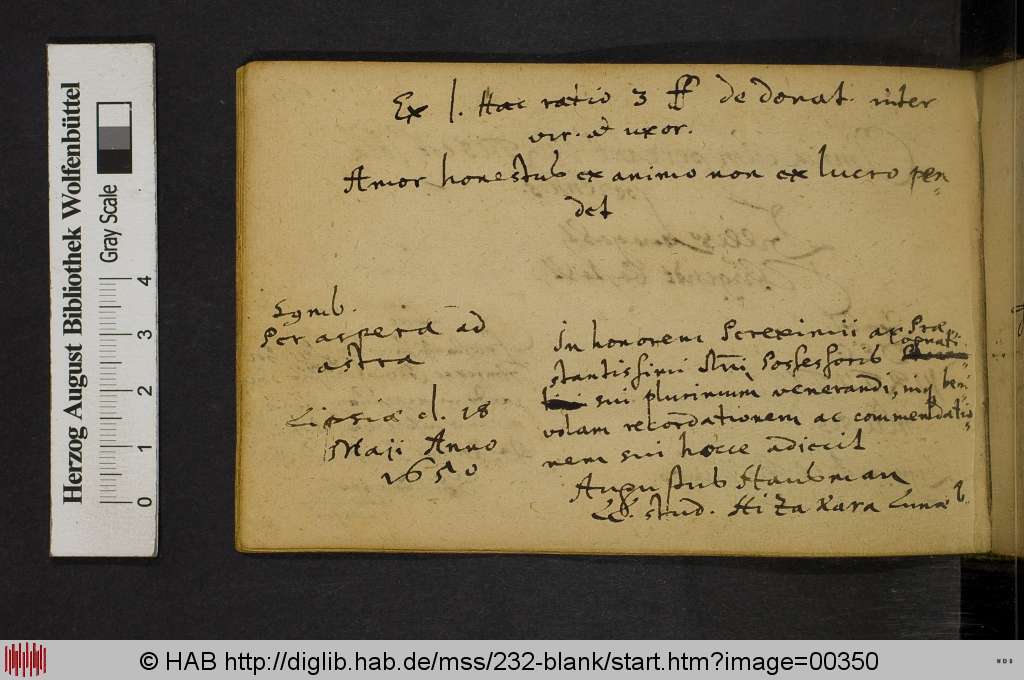 Ex l. Hac ratio 3 ff de donat. inter
vir. et uxor.
Amor honestus ex animo non ex lucro pen=
det
Symb.
Per aspera ad
astra
Lipsiæ d. 18
Maji Anno
1650
In honorem Pereximii ac Præ
stantissimi Dni Possessoris cognati
sui plurimum venerandi, inq beni
volam recordationem ac commendatio=
nem sui hocce adiecit
Augustus Hausman
LL. stud.
Herzog August Bibliothek Wolfenbüttel
Gray Scale
0 1 2 3 4
© HAB http://diglib.hab.de/mss/232-blank/start.htm?image=00350